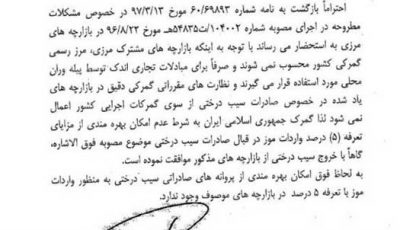 احتراماً بازگشت به نامه شماره ۶۰/۶۹۸۹۳ مورخ ۹۷/۳/۱۳ در خصوص مشکلات
مطروحه در اجرای مصوبه شماره ۱۰۴۰۰۲/ت۵۴۸۳۵هـ مورخ ۹۶/۸/۲۲ در بازارچه های
مرزی به استحضار می رساند با توجه به اینکه بازارچه های مشترک مرزی، مرز رسمی
گمرکی کشور محسوب نمی شوند و صرفاً برای مبادلات تجاری اندک توسط پیله وران
محلی مورد استفاده قرار می گیرند و نظارت های مقرراتی گمرکی دقیق در بازارچه های
یاد شده در خصوص صادرات سیب درختی از سوی گمرکات اجرایی کشور اعمال
نمی شود لذا گمرک جمهوری اسلامی ایران به شرط عدم امکان بهره مندی از مزایای
تعرفه (۵) درصد واردات موز در قبال صادرات سیب درختی موضوع مصوبه فوق الاشاره،
گاهاً با خروج سیب درختی از بازارچه های مذکور موافقت نموده است.
به لحاظ فوق امکان بهره مندی از پروانه های صادراتی سیب درختی به منظور واردات
موز با تعرفه ۵ درصد در بازارچه های موصوف وجود ندارد.